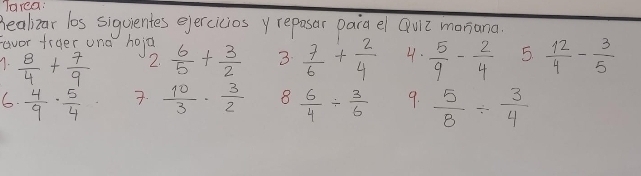 Tarea:
Realizar los siguientes ejercicios y repasar para el Quiz mañana.
Favor traer una hoja
1. 8/4 + 7/9 2. 6/5 + 3/2 3. 7/6 + 2/4 4. 5/9 - 2/4 5. 12/4 - 3/5
6. 4/9 · 5/4 7. 10/3 · 3/2 8 6/4 ÷ 3/6 9. 5/8 ÷ 3/4